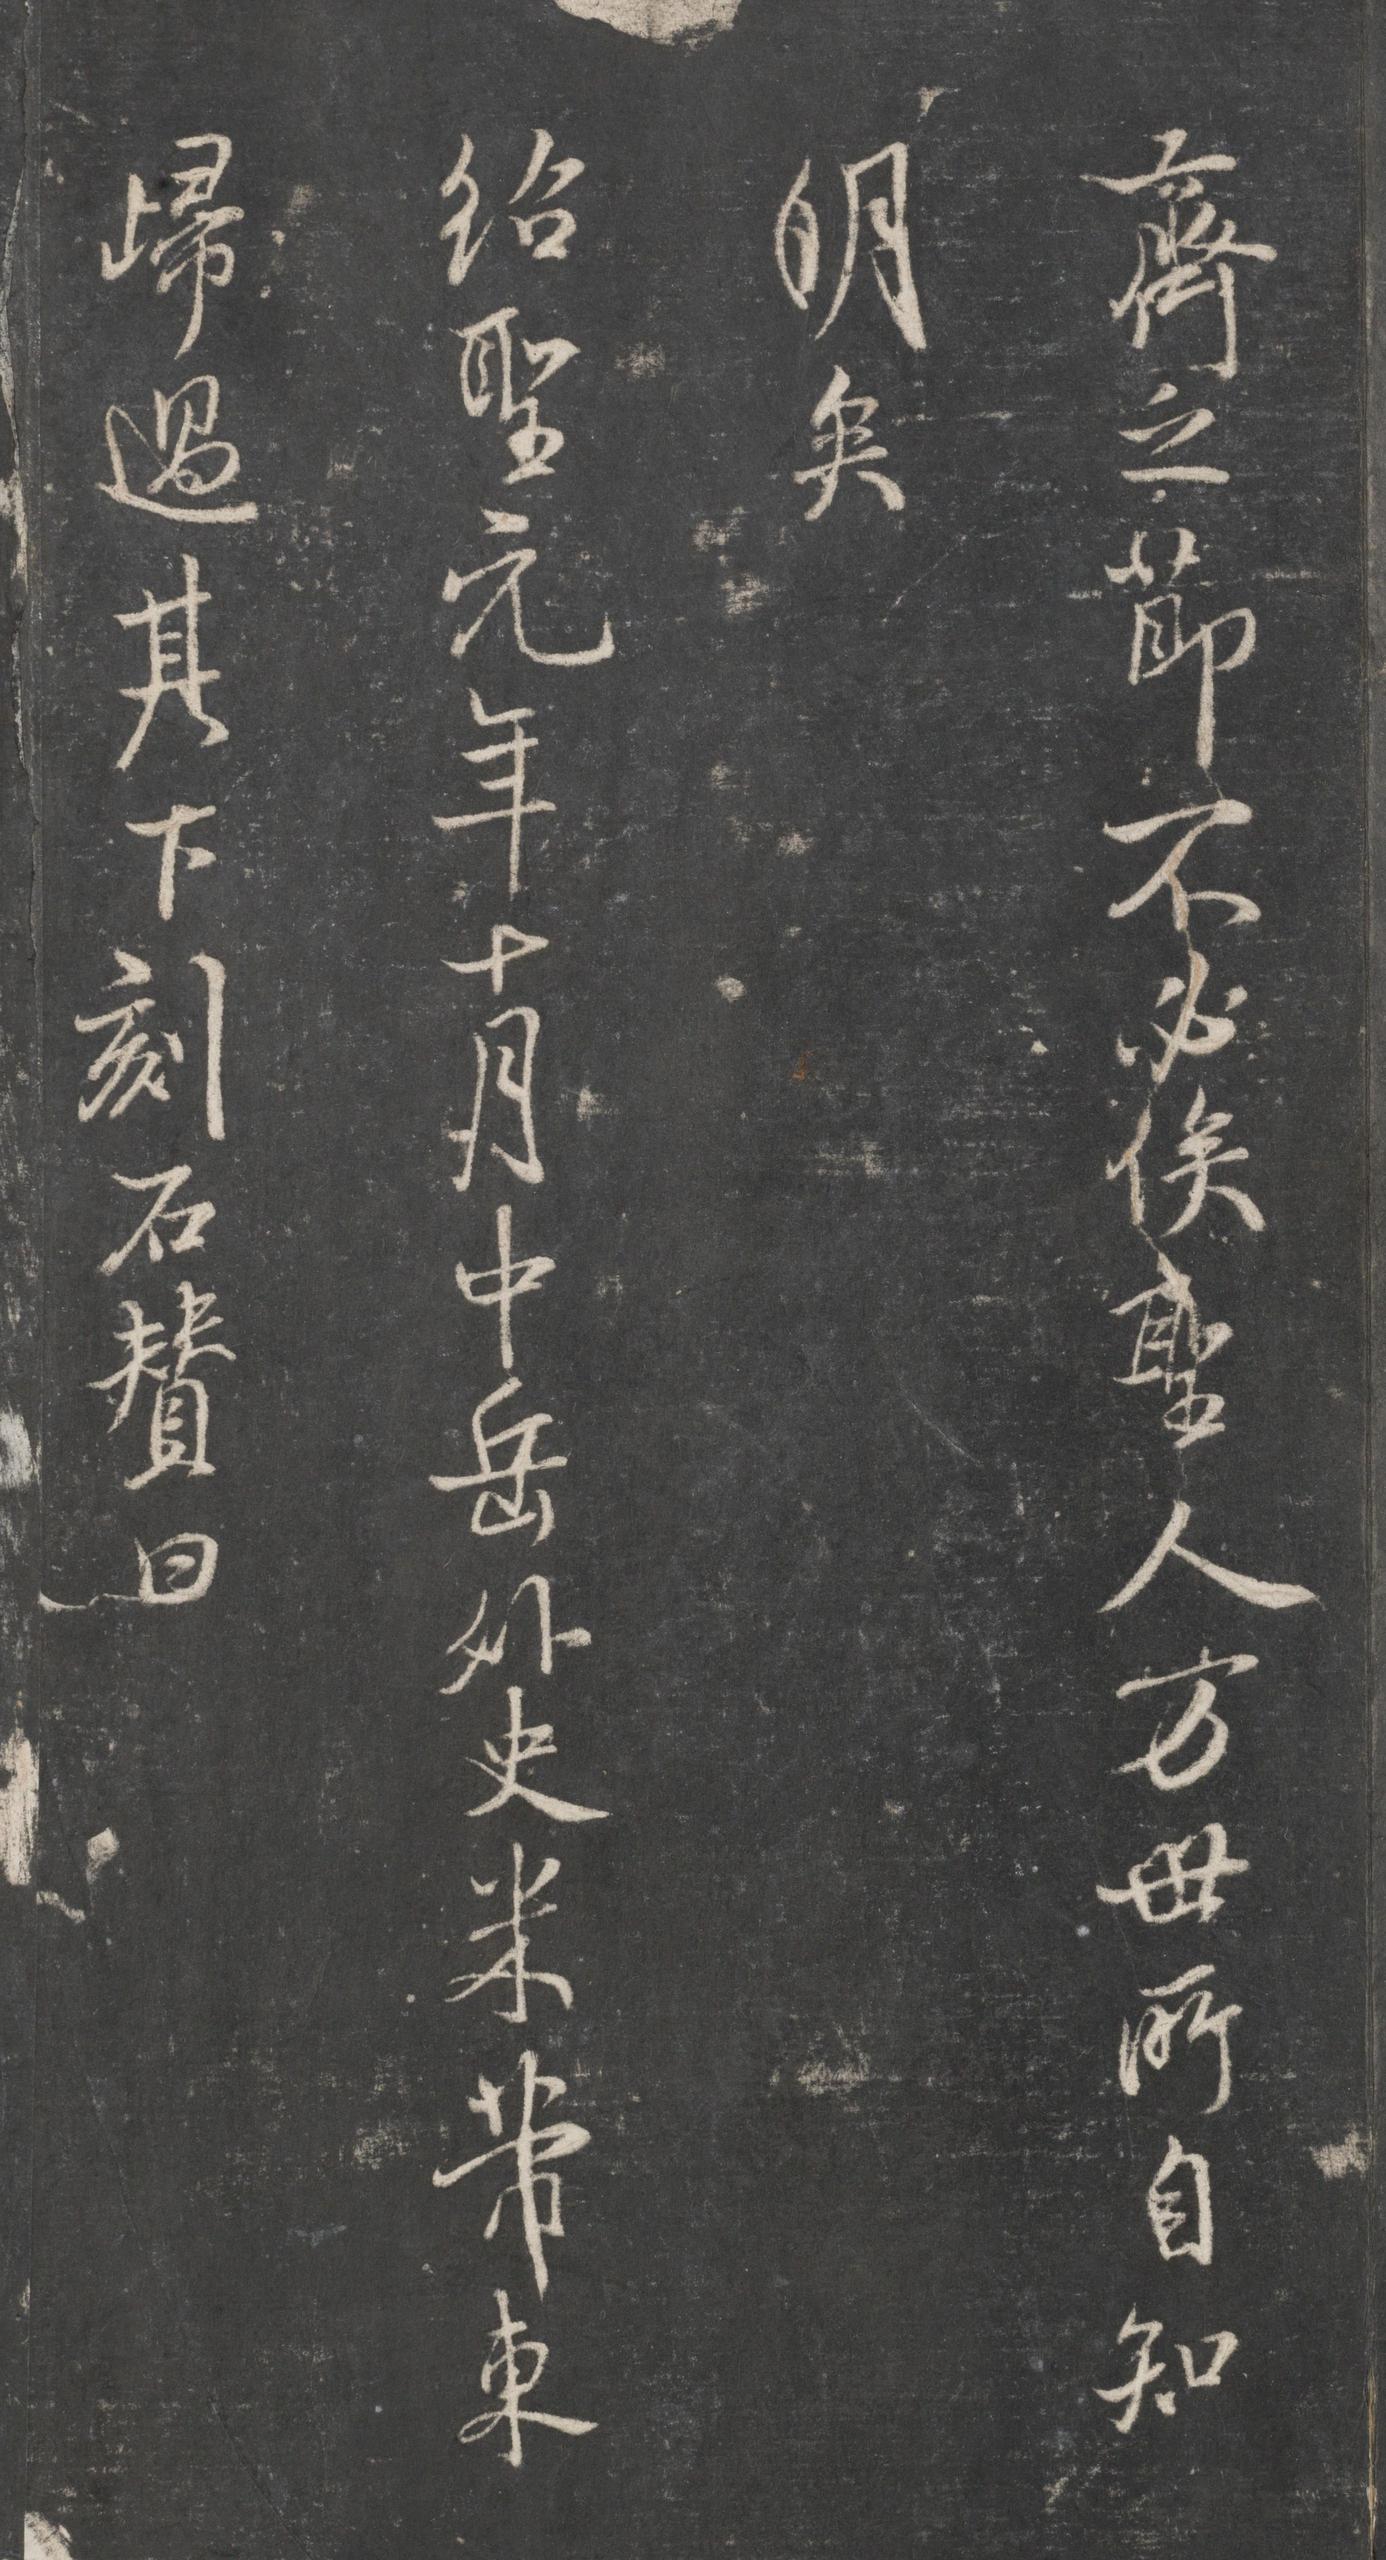 齊之節不必俟聖人万世所自知
明矣
紹聖元年十月中岳外史米芾東
歸過其下刻石賛曰